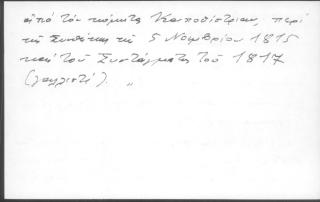 ἀπό τόν κόμητα Καποδίστριαν, περί
τῆς Συνθήκης τῆς 5 Νοεμβρίου 1815
καί τοῦ Συντάγματος τοῦ 1817
(γαλλιστί). "